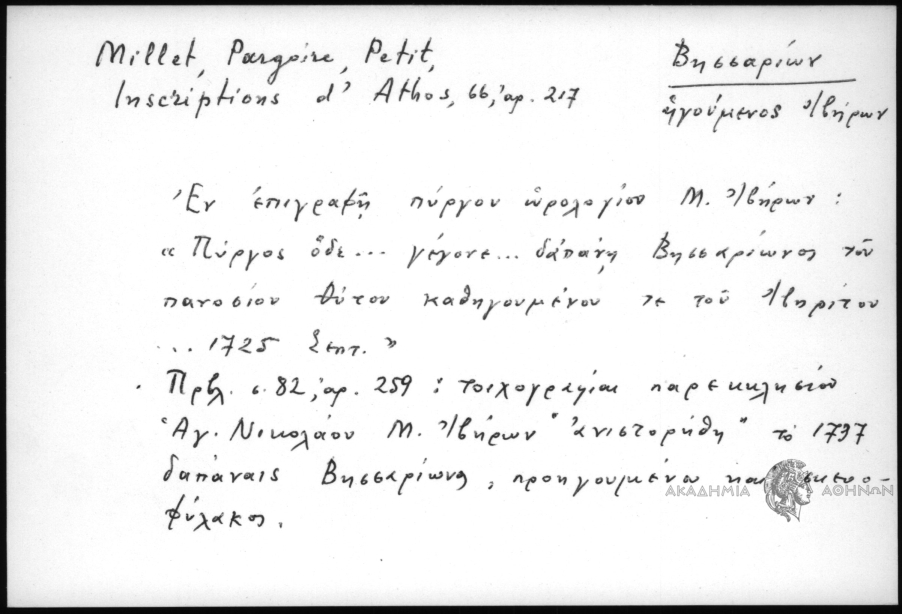 Millet, Pargoire, Petit,
Inscriptions d' Athos, 66, ἀρ. 217
Βησσαρίων
ἡγούμενος Ἰβήρων
Ἐν ἐπιγραφῇ πύργου ὡρολογίου Μ. Ἰβήρων :
« Πύργος ὅδε... γέγονε... δαπάνῃ Βησσαρίωνος τοῦ
πανοσίου θύτου καθηγουμένου τε τοῦ Ἰβηρίτου
... 1725 Σεπτ. »
. Πρβλ. σ. 82, ἀρ. 259 : τοιχογραφίαι παρεκκλησίου
Ἁγ. Νικολάου Μ. Ἰβήρων "ἀνιστορήθη" τὸ 1737
δαπάναις Βησσαρίωνος, προηγουμένου καὶ σκευο-
φύλακος.
ΑΚΑΔΗΜΙΑ ΑΘΗΝΩΝ